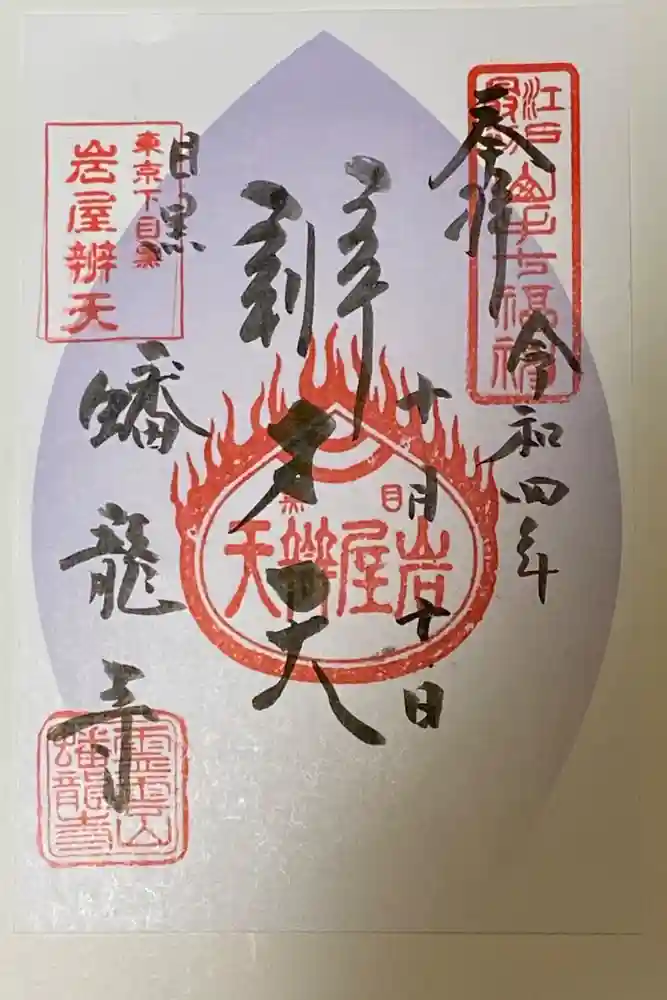 奉拝
令和四年
十月十日
江戸最初山手七福神
辨才天
目黒
岩屋辨天
東京下目黒
岩屋辨天
目黒
蟠龍寺
霊雲山
蟠龍寺